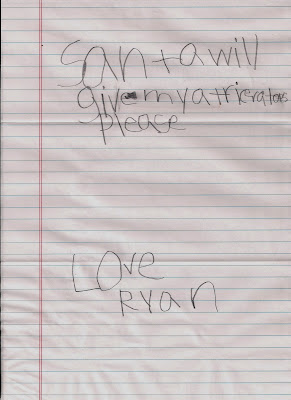 Santa will
give my a tricratos
please
Love
Ryan